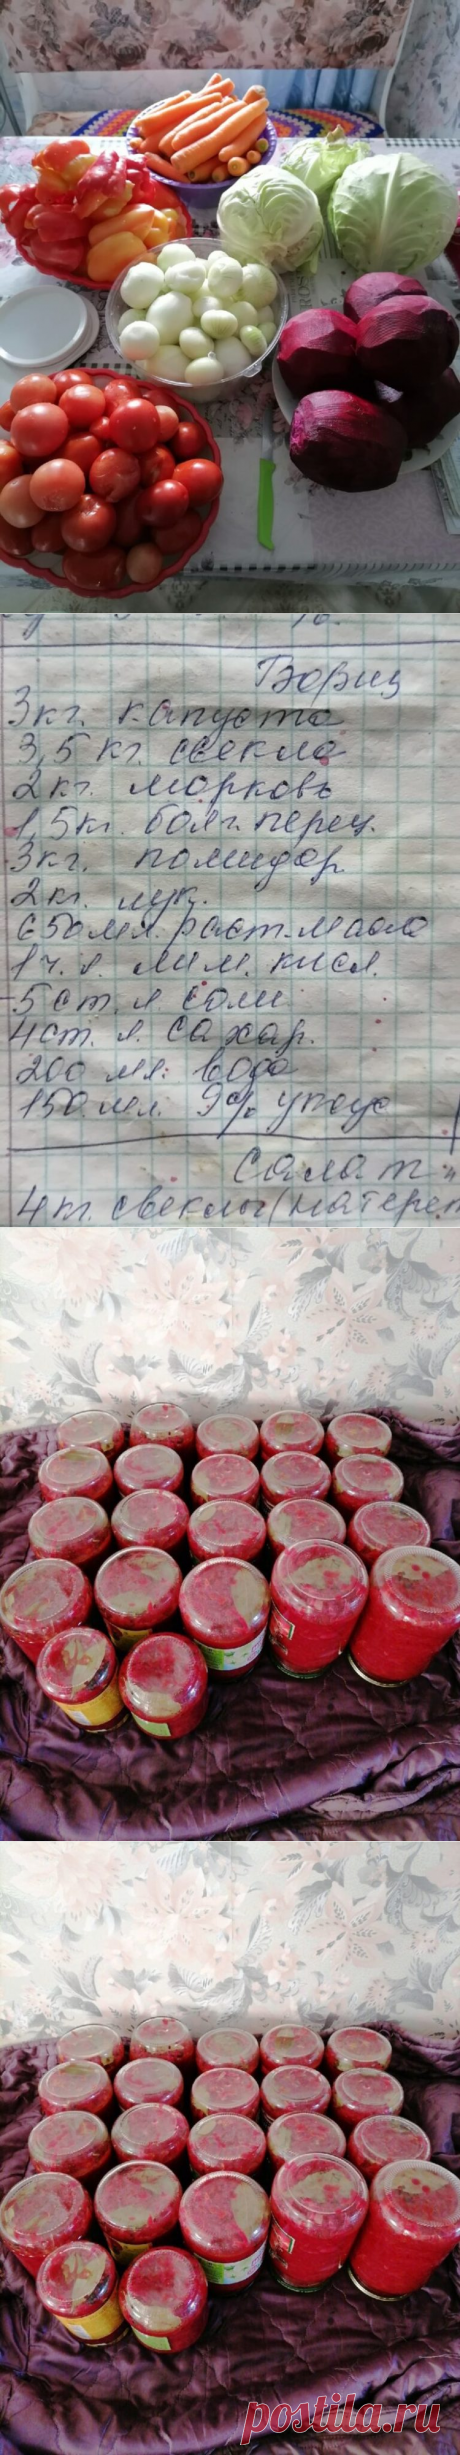 Борщ
3кг. капуста
3,5 кг. свекла
2кг. морковь
1,5кг. болг. перец.
3кг. помидор
2кг. лук.
650мл. раст. масло
1 ч. л. лим. кисл.
5 ст. л. соли
4 ст. л. сахар.
200 мл. вода
150 мл. 9% уксус
Салат "
4 кг. свеклы (натереть
postila.ru